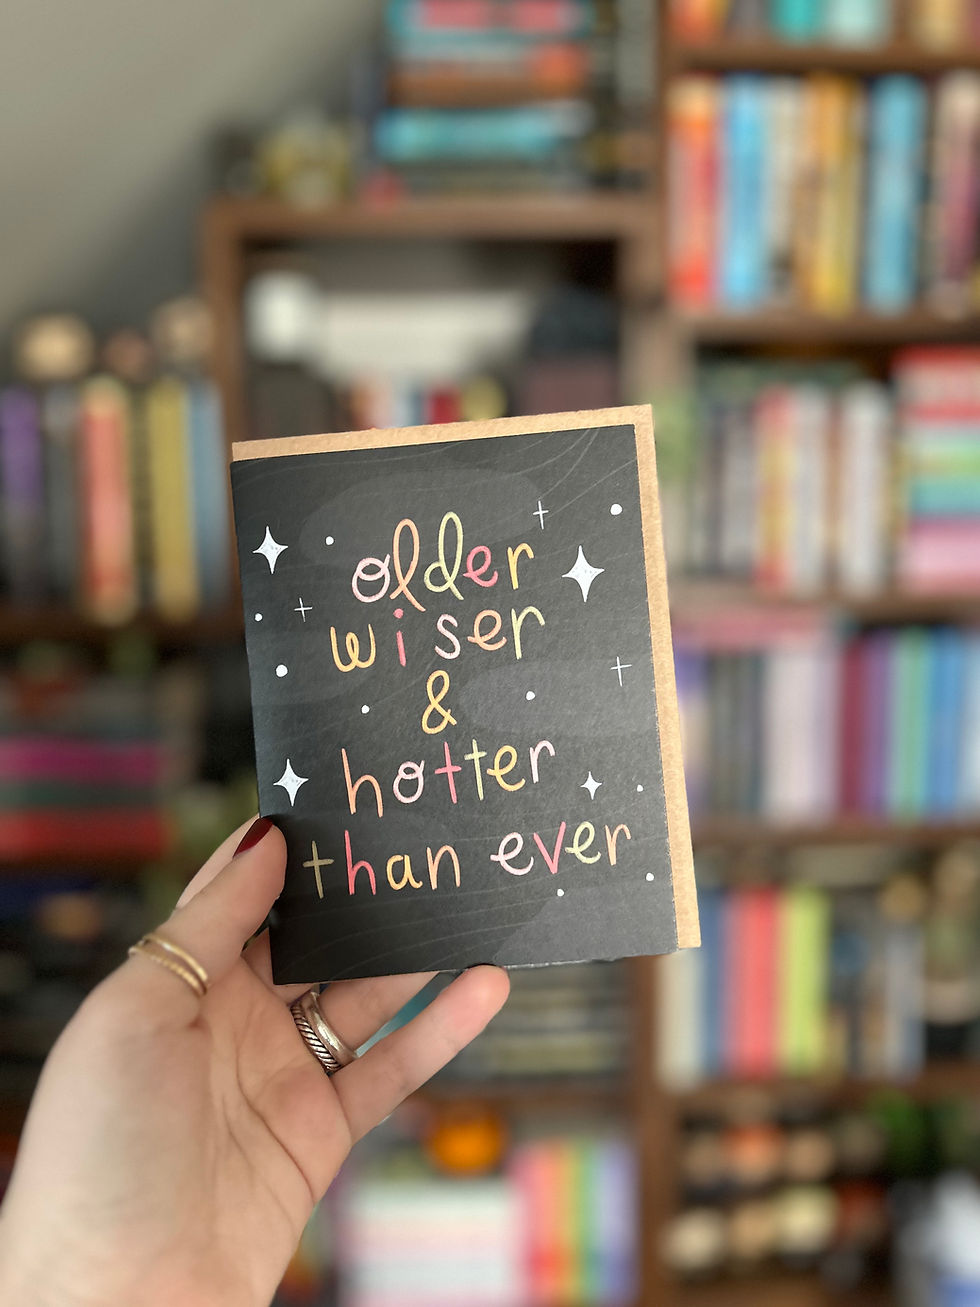 older
wiser
&
hotter
than ever